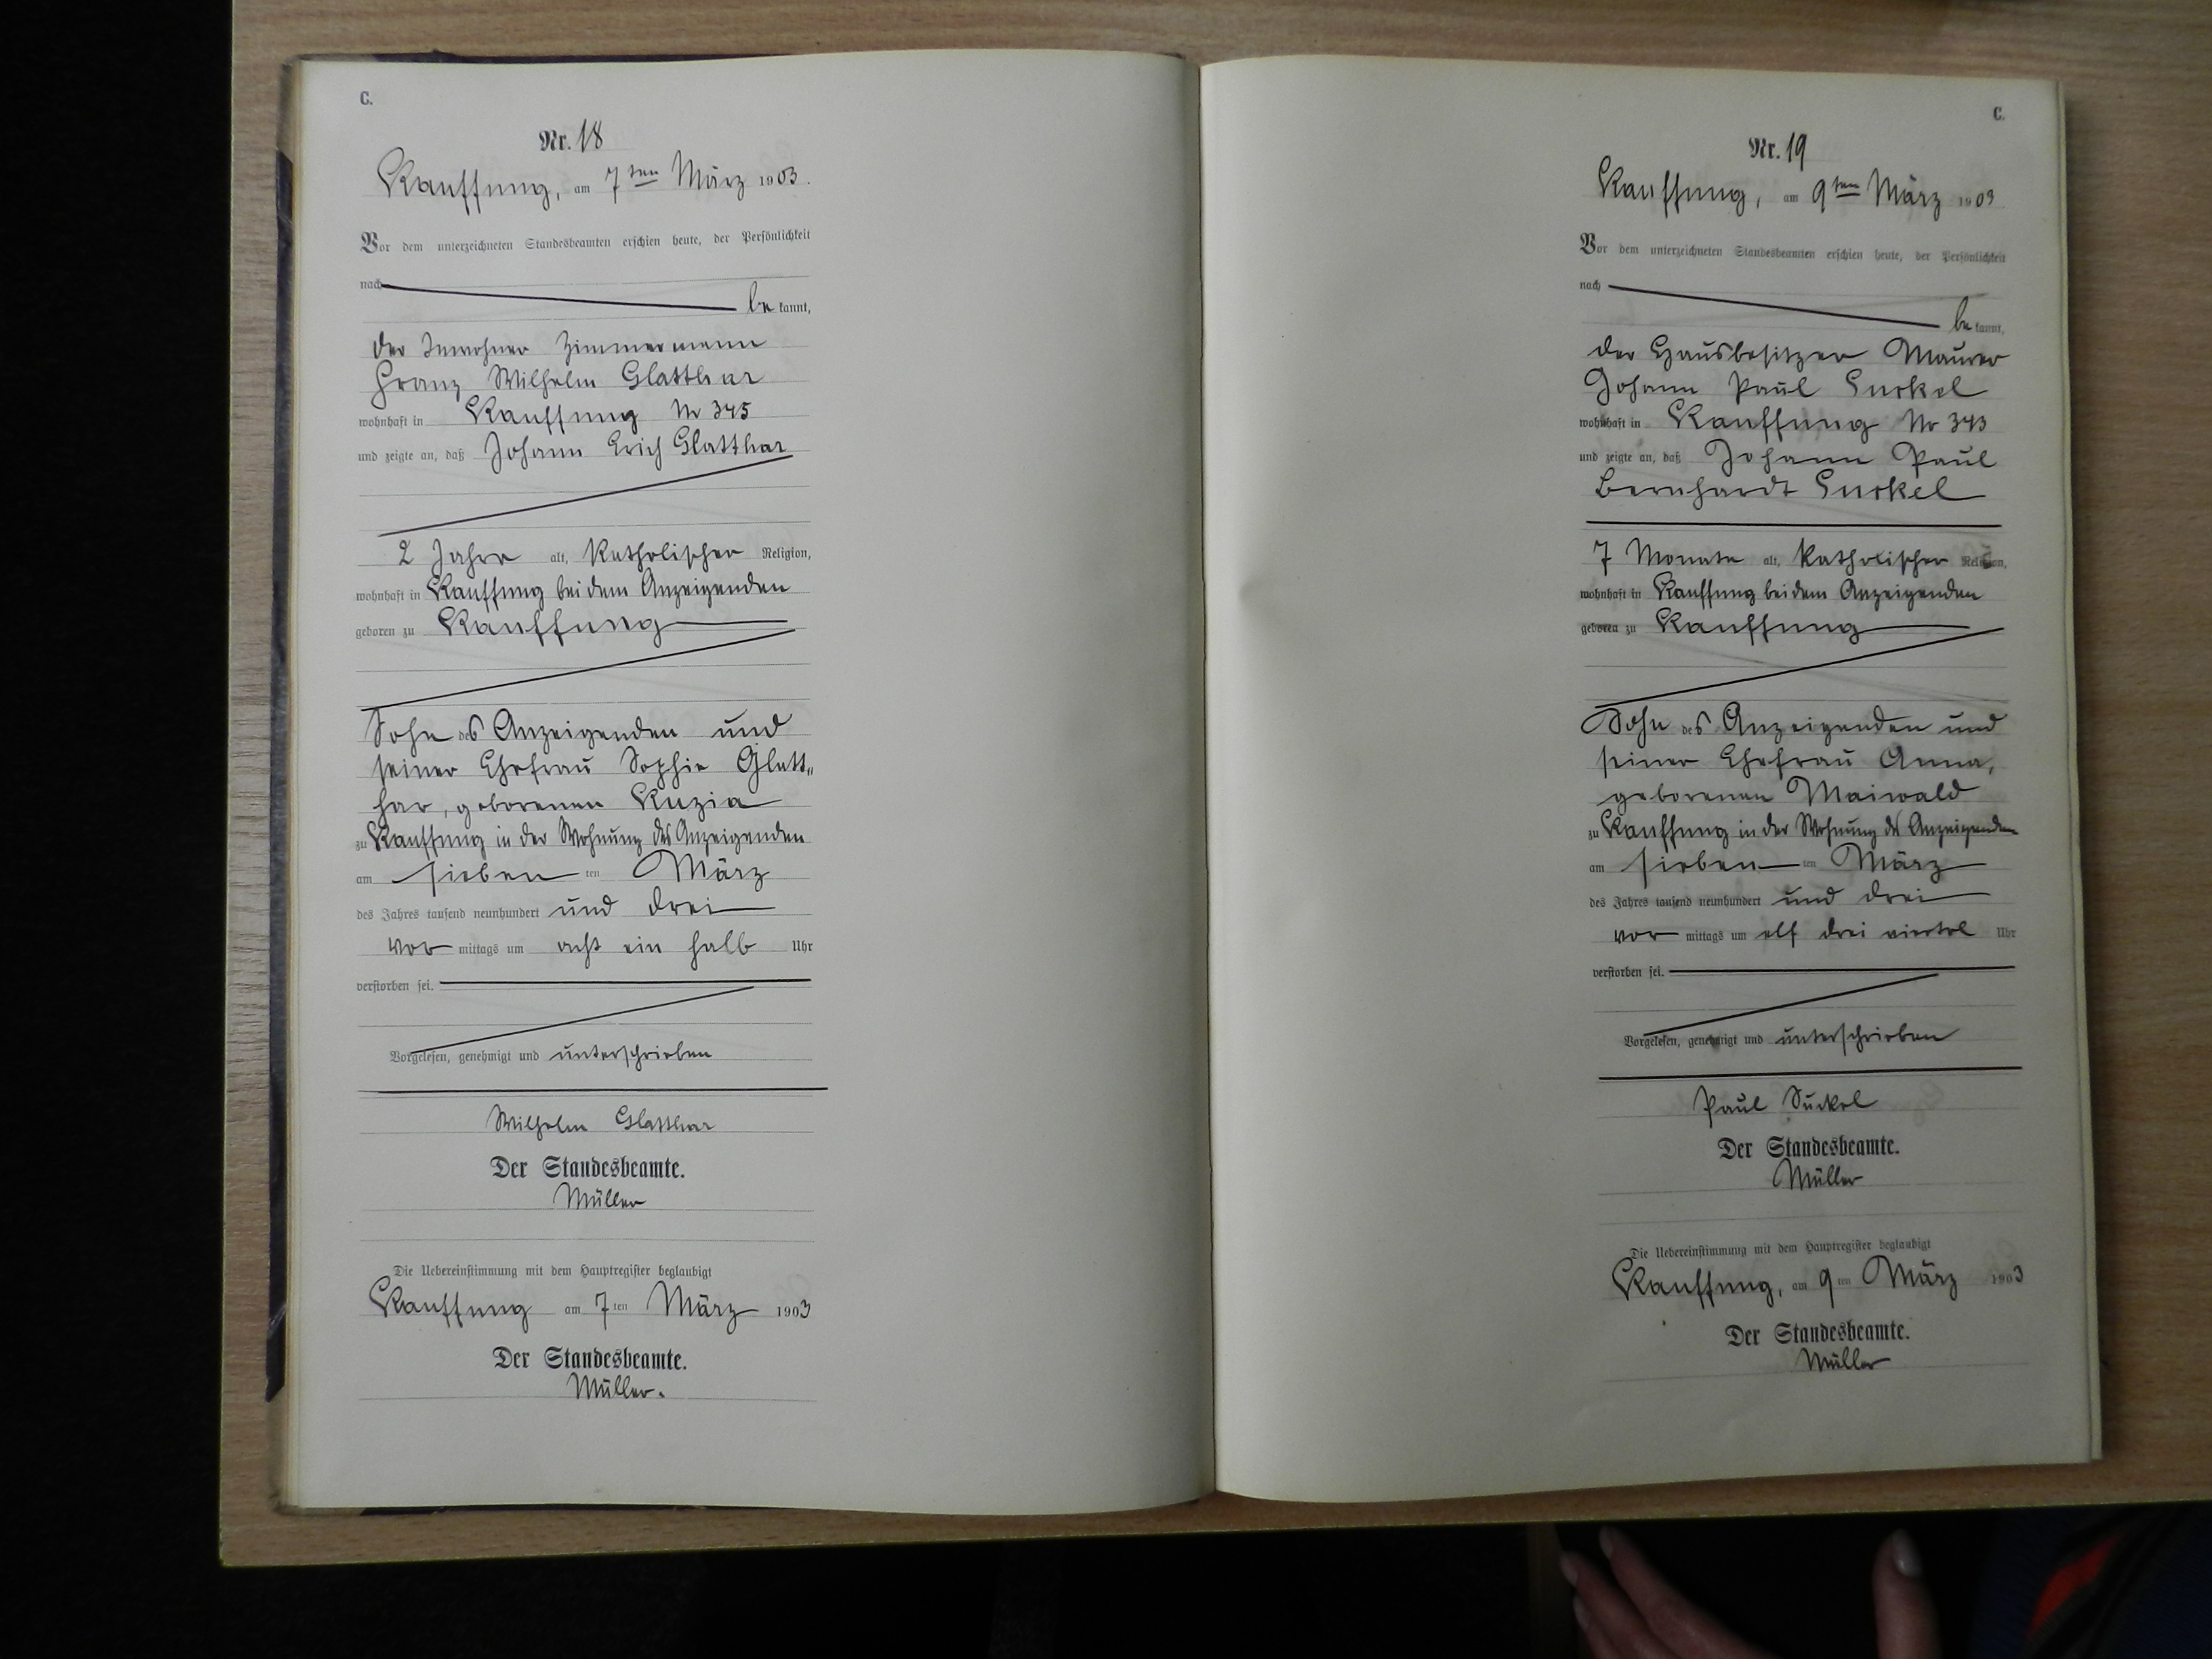 C.
Nr. 18
Kauffung, am 7ten März 1903.
Vor dem unterzeichneten Standesbeamten erschien heute, der Persönlichkeit
nach
be kannt,
der Inwohner Zimmermann
Franz Wilhelm Glatthar
wohnhaft in Kauffung Nr 345
und zeigte an, daß Johann Erich Glatthar
2 Jahre alt, Katholischer Religion,
wohnhaft in Kauffung bei dem Anzeigenden
geboren zu Kauffung
Sohn des Anzeigenden und
seiner Ehefrau Sophie Glatt„
har, geborenen Kuzia
zu Kauffung in der Wohnung des Anzeigenden
am sieben ten März
des Jahres tausend neunhundert und drei
vor mittags um acht ein halb Uhr
verstorben sei.
Vorgelesen, genehmigt und unterschrieben
Wilhelm Glatthar
Der Standesbeamte.
Müller
Die Uebereinstimmung mit dem Hauptregister beglaubigt
Kauffung am 7ten März 1903
Der Standesbeamte.
Müller.
C.
Nr. 19
Kauffung, am 9ten März 1903
Vor dem unterzeichneten Standesbeamten erschien heute, der Persönlichkeit
nach
be kannt,
der Hausbesitzer Maurer
Johann Paul Suckel
wohnhaft in Kauffung Nr 343
und zeigte an, daß Johann Paul
Bernhardt Suckel
7 Monate alt, Katholischer Religion,
wohnhaft in Kauffung bei dem Anzeigenden
geboren zu Kauffung
Sohn des Anzeigenden und
seiner Ehefrau Anna,
geborenen Maiwald
zu Kauffung in der Wohnung des Anzeigenden
am sieben ten März
des Jahres tausend neunhundert und drei
vor mittags um elf drei viertel Uhr
verstorben sei.
Vorgelesen, genehmigt und unterschrieben
Paul Suckel
Der Standesbeamte.
Müller
Die Uebereinstimmung mit dem Hauptregister beglaubigt
Kauffung, am 9ten März 1903
Der Standesbeamte.
Müller